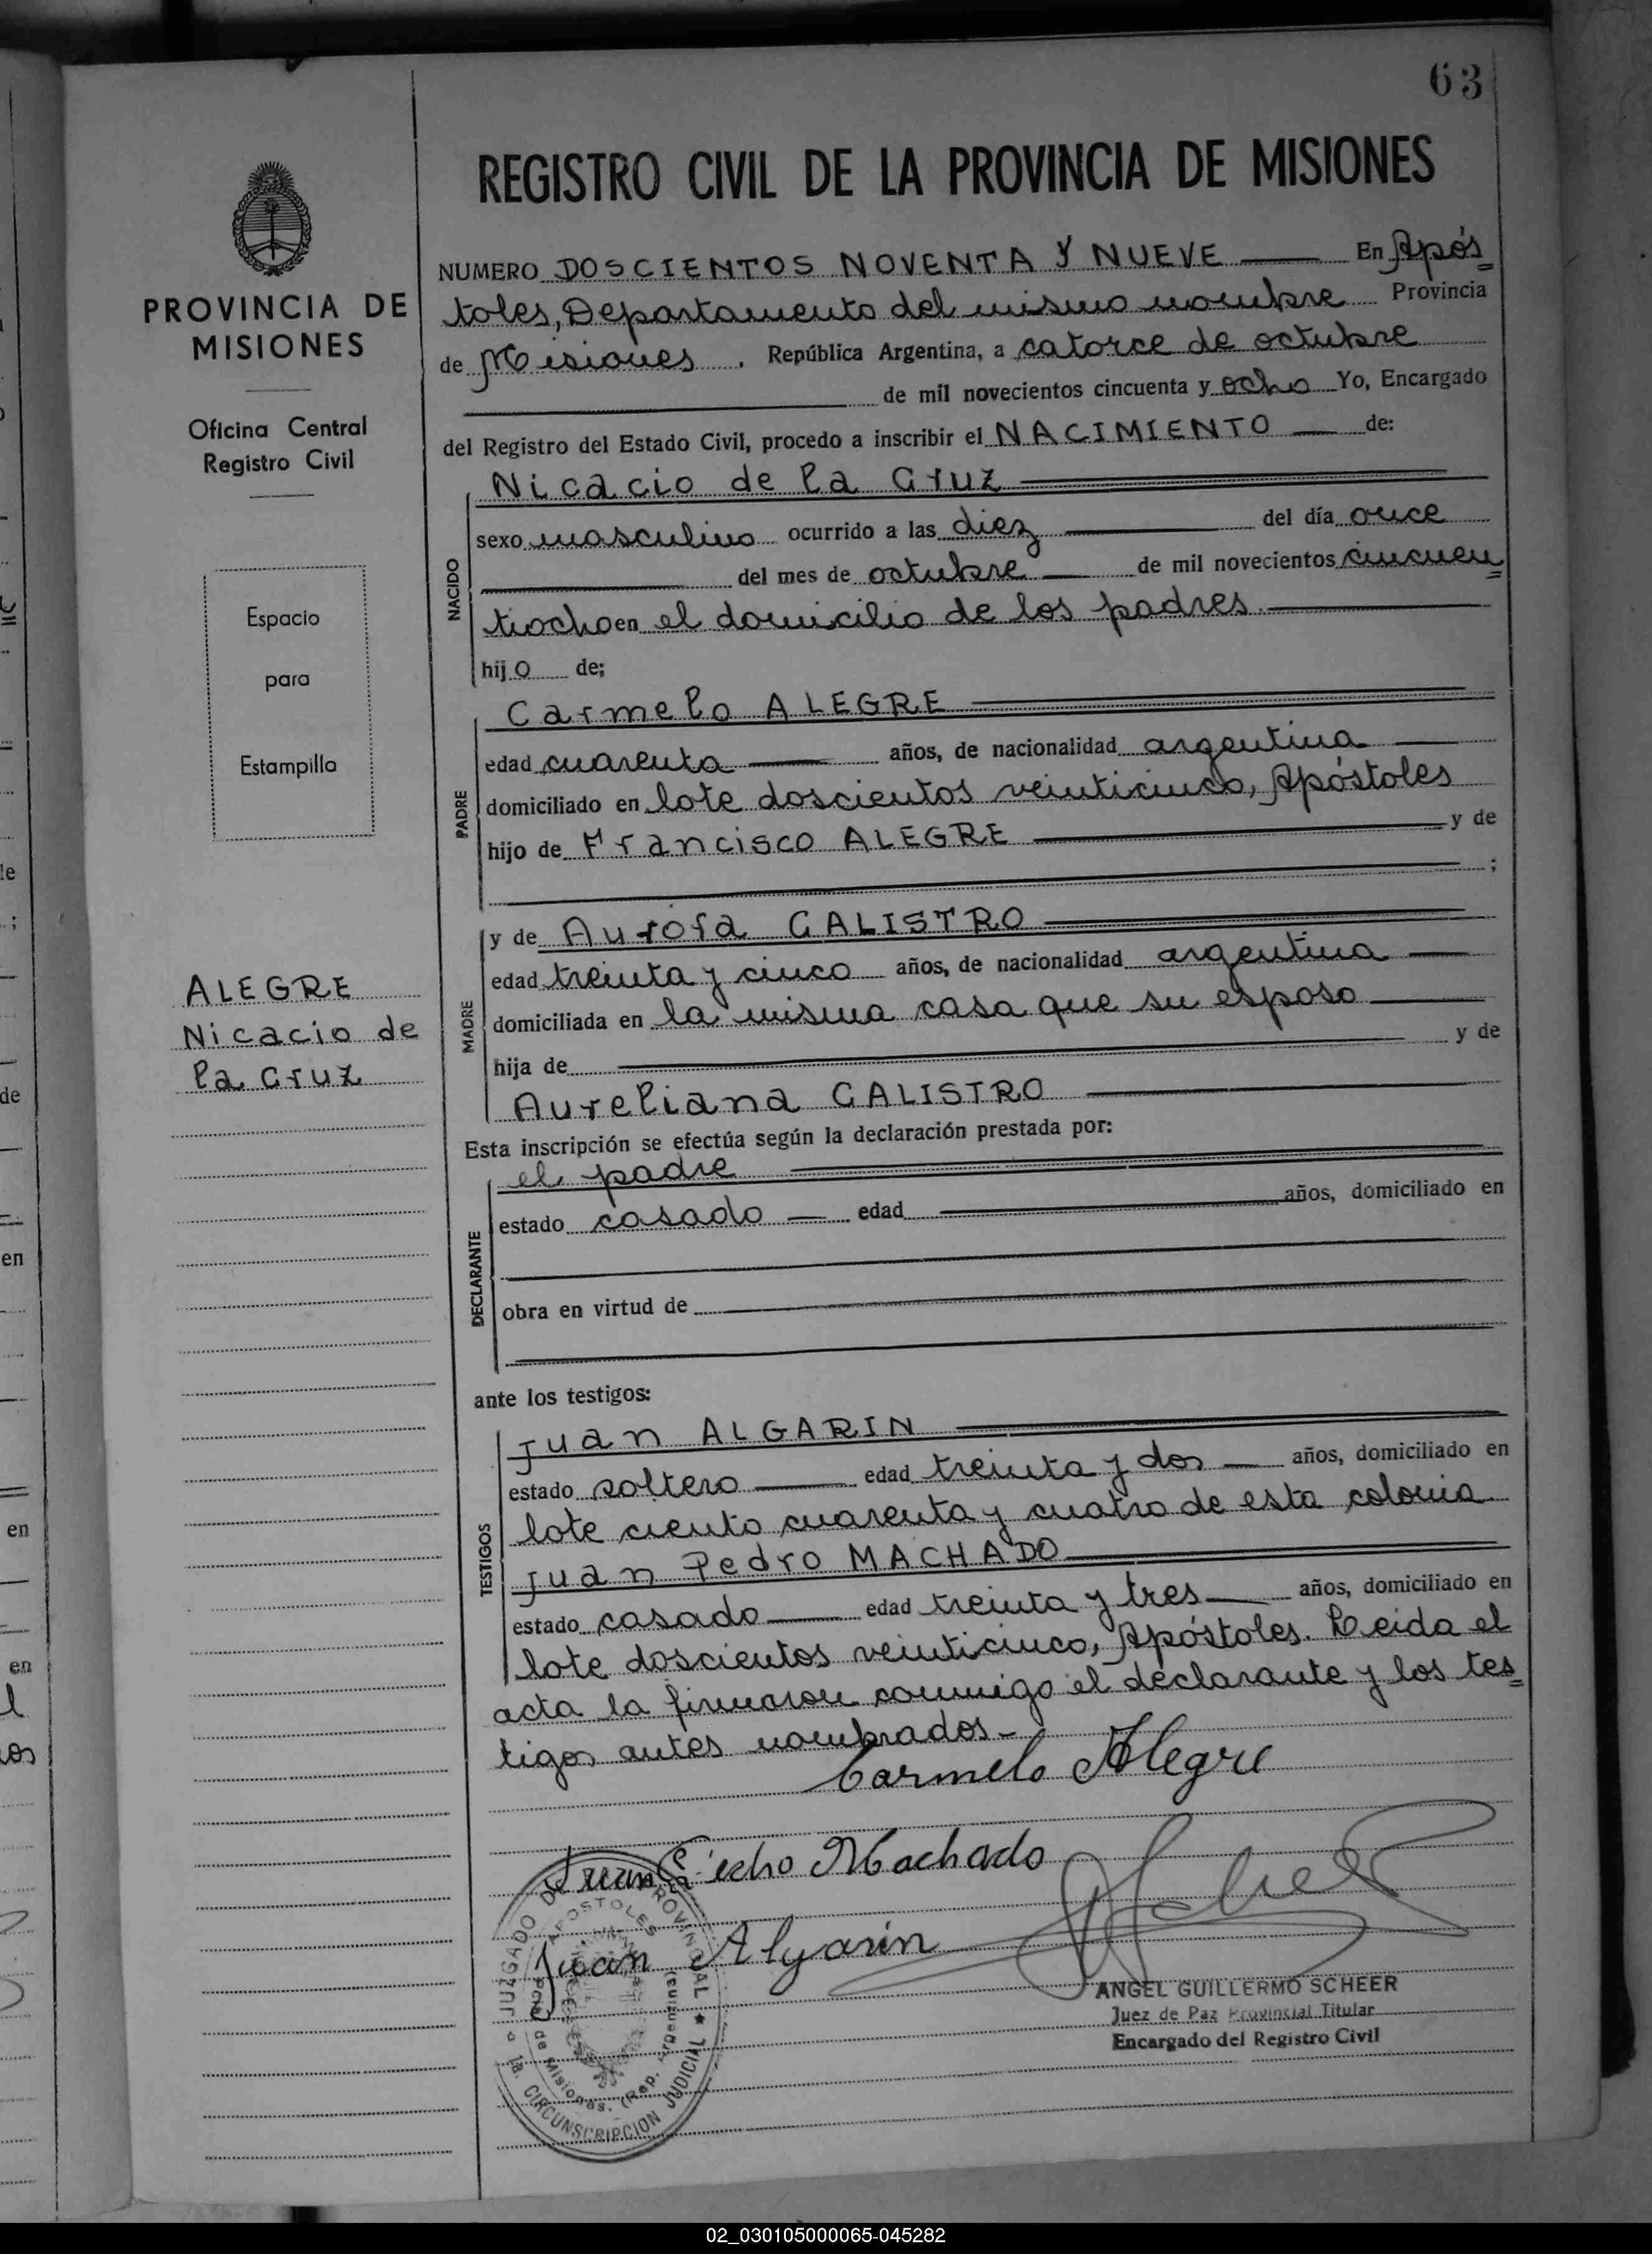 63
REGISTRO CIVIL DE LA PROVINCIA DE MISIONES
PROVINCIA DE
MISIONES
Oficina Central
Registro Civil
Espacio
para
Estampilla
ALEGRE
Nicacio de
la Cruz
NUMERO DOSCIENTOS NOVENTA Y NUEVE En Após=
toles, Departamento del mismo nombre Provincia
de Misiones . República Argentina, a catorce de octubre
de mil novecientos cincuenta y ocho Yo, Encargado
del Registro del Estado Civil, procedo a inscribir el NACIMIENTO de:
NACIDO
Nicacio de la Cruz
sexo masculino ocurrido a las diez del día once
del mes de octubre de mil novecientos cincuen=
tiocho en el domicilio de los padres
hijo de;
PADRE
Carmelo ALEGRE
edad cuarenta años, de nacionalidad argentina
domiciliado en lote doscientos veinticinco, Apóstoles
hijo de Francisco ALEGRE y de
;
MADRE
y de Aurora GALISTRO
edad treinta y cinco años, de nacionalidad argentina
domiciliada en la misma casa que su esposo
hija de y de
Aureliana GALISTRO
Esta inscripción se efectúa según la declaración prestada por:
DECLARANTE
el padre
estado casado edad años, domiciliado en
obra en virtud de
ante los testigos:
TESTIGOS
Juan ALGARIN
estado soltero edad treinta y dos años, domiciliado en
lote ciento cuarenta y cuatro de esta colonia
Juan Pedro MACHADO
estado casado edad treinta y tres años, domiciliado en
lote doscientos veinticinco, Apóstoles. Leida el
acta la firmaron conmigo el declarante y los tes=
tigos antes nombrados.-
Carmelo Alegre
Juan Pedro Machado
Juan Algarin
JUZGADO DE PROVINCIAL
APOSTOLES
de Misiones. (Rep. Argentina)
1a. CIRCUNSCRIPCION JUDICIAL
ANGEL GUILLERMO SCHEER
Juez de Paz Provincial Titular
Encargado del Registro Civil
02_030105000065-045282